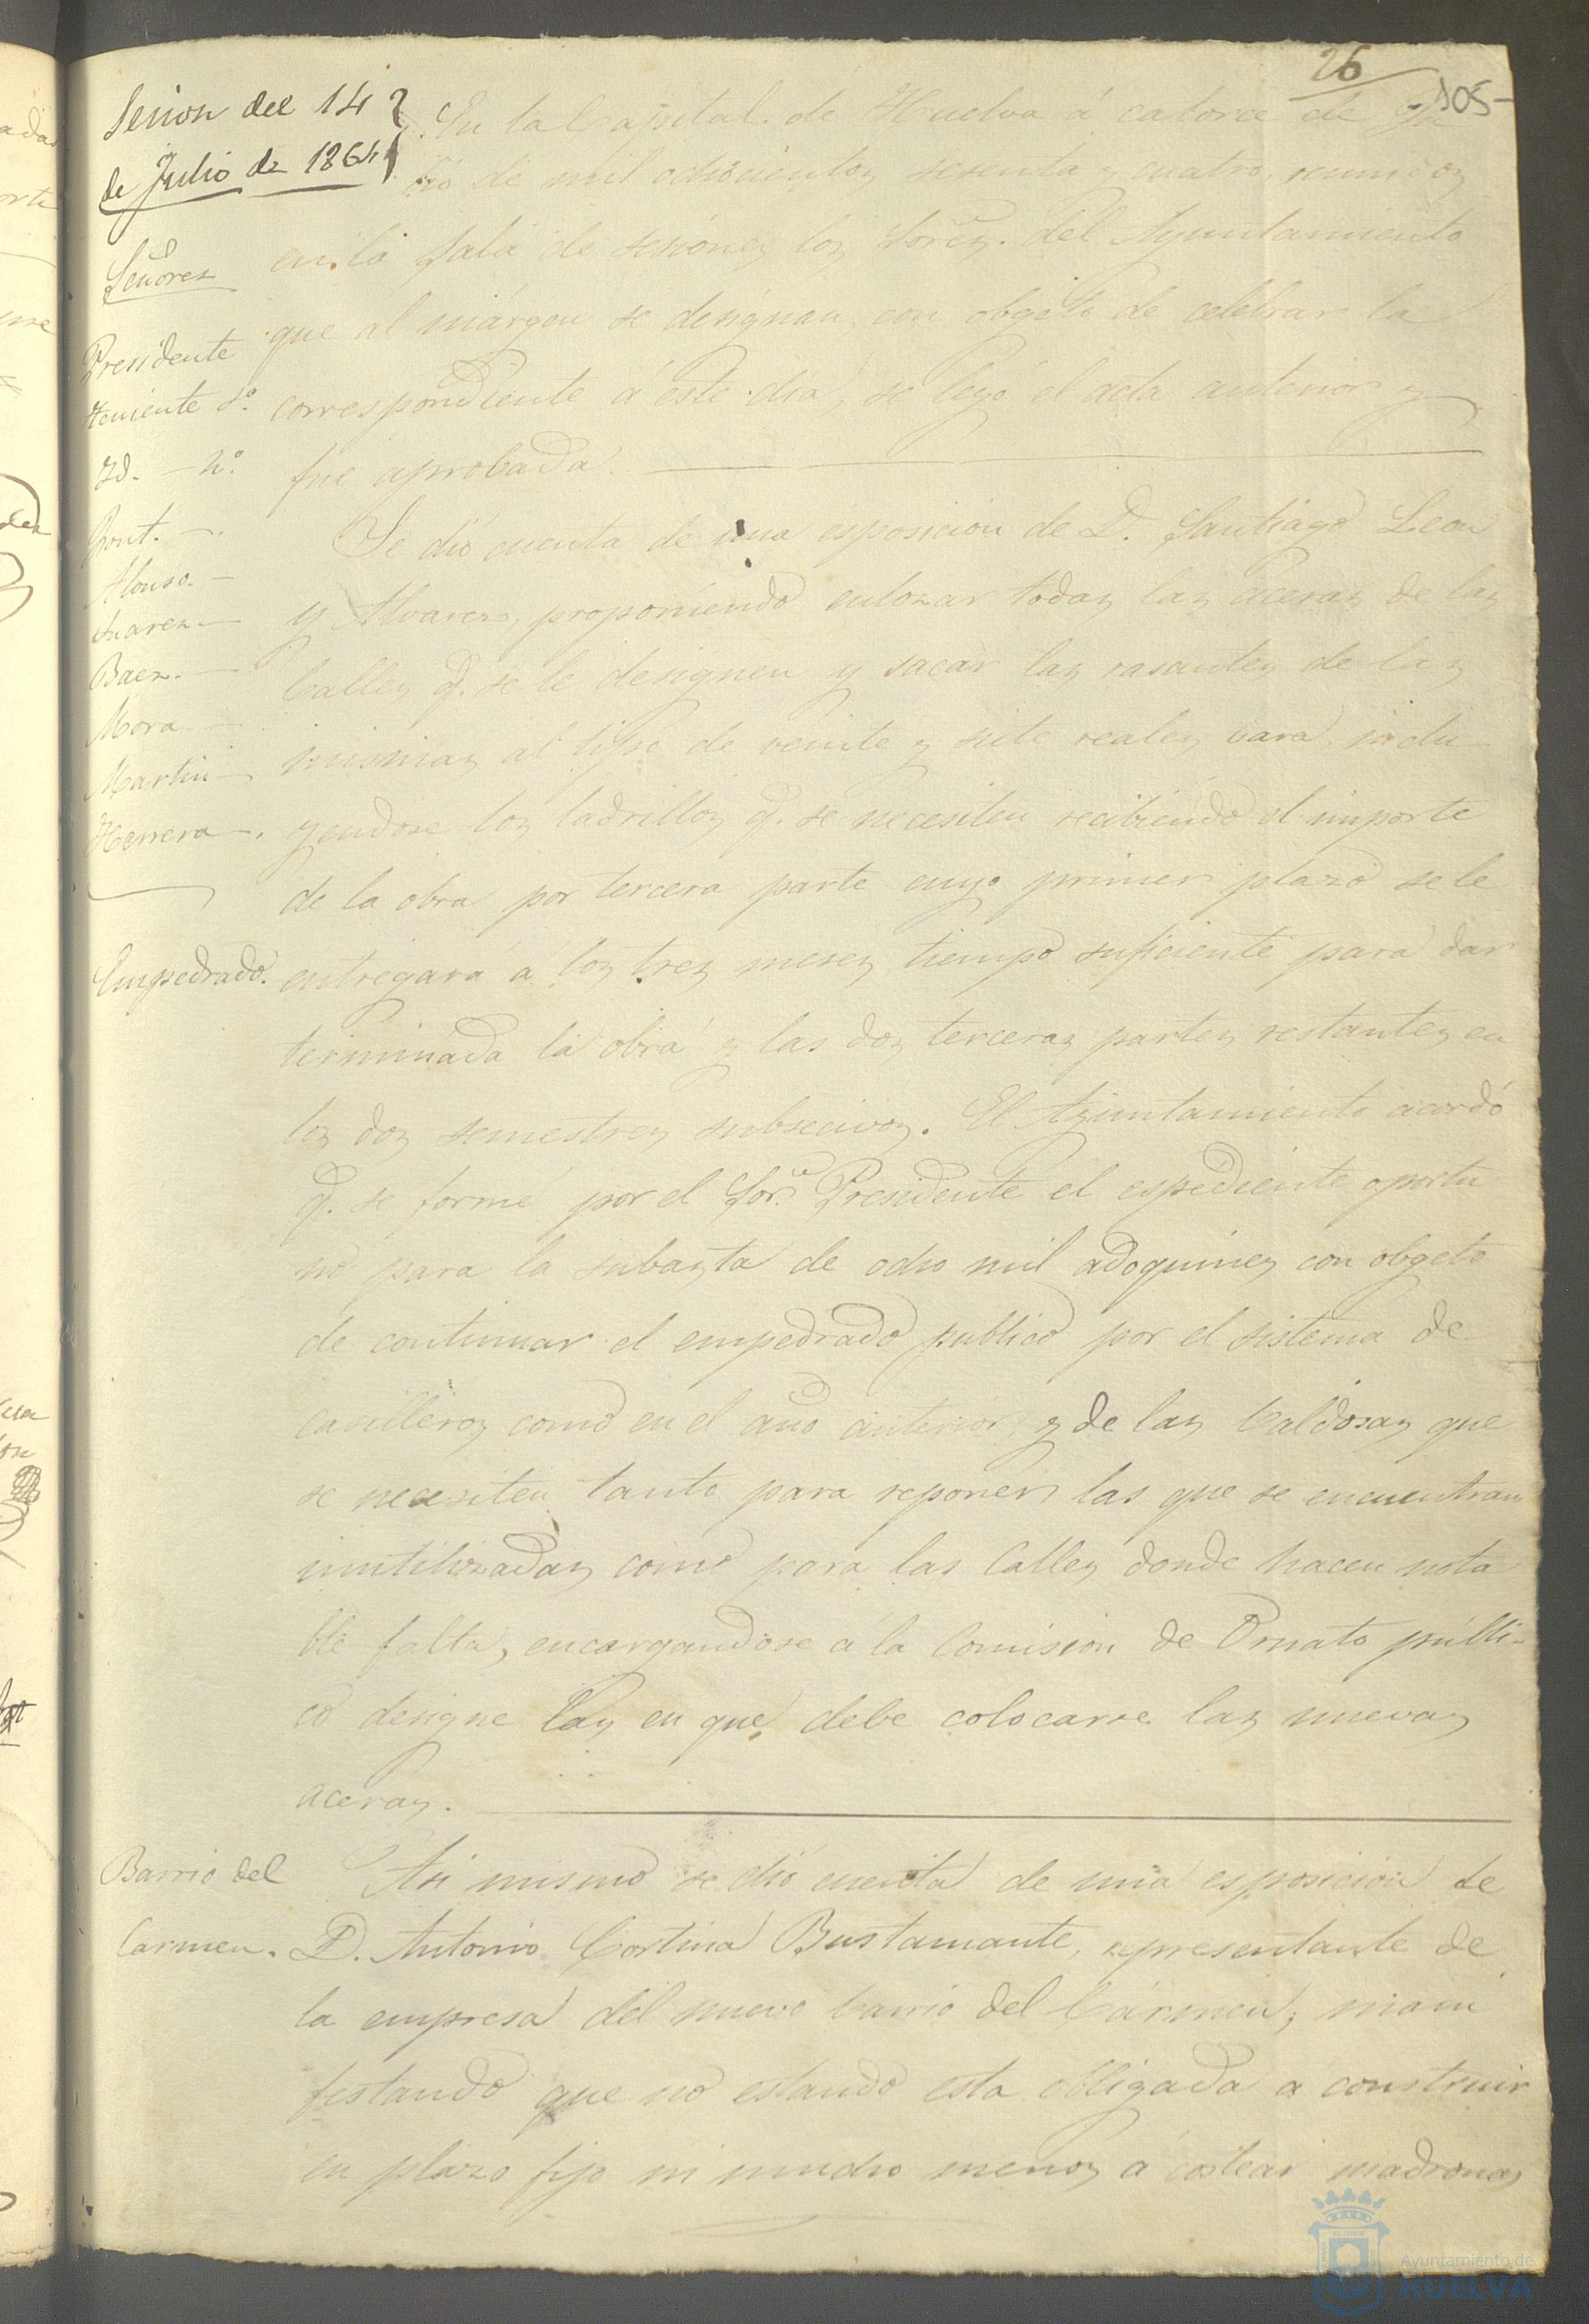 26
105-
Sesion del 14
de Julio de 1864
Señores
Presidente
Teniente 1º.
Id. - 2º.
Font. -
Alonso. -
Suarez -
Baez. -
Mora -
Martin -
Herrera -.
Empedrado.
Barrio del
Carmen.
En la Capital de Huelva á catorce de Ju
lio de mil ochocientos sesenta y cuatro, reunidos
en la Sala de sesiones los Sores. del Ayuntamiento
que al márgen se designan, con obgeto de celebrar la
correspondiente á este dia, se leyó el acta anterior y
fué aprobada.
Se dió cuenta de una esposicion de D. Santiago Leon
y Alvarez, proponiendo enlozar todas las aceras de las
Calles q. se le designen y sacar las rasantes de las
mismas al tipo de veinte y siete reales vara inclu
yendose los ladrillos q. se necesiten recibiendo el importe
de la obra por tercera parte cuyo primer plazo se le
entregara á los tres meses, tiempo suficiente para dar
terminada la obra y las dos terceras partes restantes en
los dos semestres subsecivos. El Ayuntamiento acordó
q. se forme por el Sor. Presidente el espediente oportu
no para la subasta de ocho mil adoquines con obgeto
de continuar el empedrado publico por el sistema de
casilleros como en el año anterior y de las baldosas que
se necesiten tanto para reponer las que se encuentran
inutilizadas como para las Calles donde hacen nota
ble falta, encargandose á la Comision de Ornato públi-
co designe las en que debe colocarse las nuevas
aceras.
Asi mismo se dió cuenta de una esposicion de
D. Antonio Cortina Bustamante, representante de
la empresa del nuevo barrio del Cármen, mani
festando que no estando esta obligada a construir
en plazo fijo ni mucho menos á costear madronas
Ayuntamiento de
HUELVA